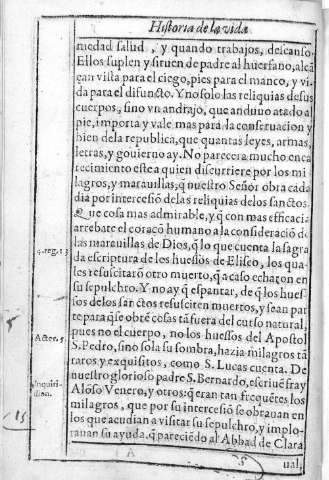 Historia de la vida
medad salud, y quando trabajos, descanso.
Ellos suplen y siruen de padre al huerfano, alcã
çan vista para el ciego, pies para el manco, y vi-
da para el difuncto. Y no solo las reliquias de sus
cuerpos, sino vn andrajo, que anduuo atado al
pie, importa y vale mas para la conseruacion y
bien de la republica, que quantas leyes, armas,
letras, y gouierno ay. No parecera mucho enca
recimiento este a quien discurriere por los mi
lagros, y marauillas, q̃ nuestro Señor obra cada
dia por intercesiõ de las reliquias de los sanctos.
Que cosa mas admirable, y q̃ con mas efficacia
arrebate el coraçõ humano a la consideraciõ de
las marauillas de Dios, q̃ lo que cuenta la sagra
da escriptura de los huessos de Eliseo, los qua-
4.reg.13
les resuscitarõ otro muerto, q̃ a caso echaron en
su sepulchro. Y no ay q̃ espantar, de q̃ los hues-
sos de los sanctos resusciten muertos, y sean par
te para q̃ se obrẽ cosas tã fuera del curso natural,
pues no el cuerpo, no los huessos del Apostol
Acter. 5.
S. Pedro, sino sola su sombra, hazia milagros tã
raros y exquisitos, como S. Lucas cuenta. De
nuestro glorioso padre S. Bernardo, escriuẽ fray
Inquiri-
dion.
Alõso Venero, y otros: q̃ eran tan frequẽtes los
milagros, que por su intercesiõ se obrauan en
los que acudian a visitar su sepulchro, y implo-
15
rauan su ayuda, q̃ pareciẽdo al Abbad de Clara
ual,